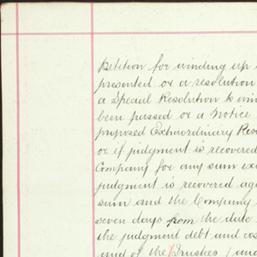 Petition for winding up
presented or a resolution
a Special Resolution to win
been passed or a Notice
proposed Extraordinary Res
or if judgment is recovered
Company for any sum ex
judgment is recovered aga
sum and the Company
seven days from the date
the judgment debt and cos
of the Trustees